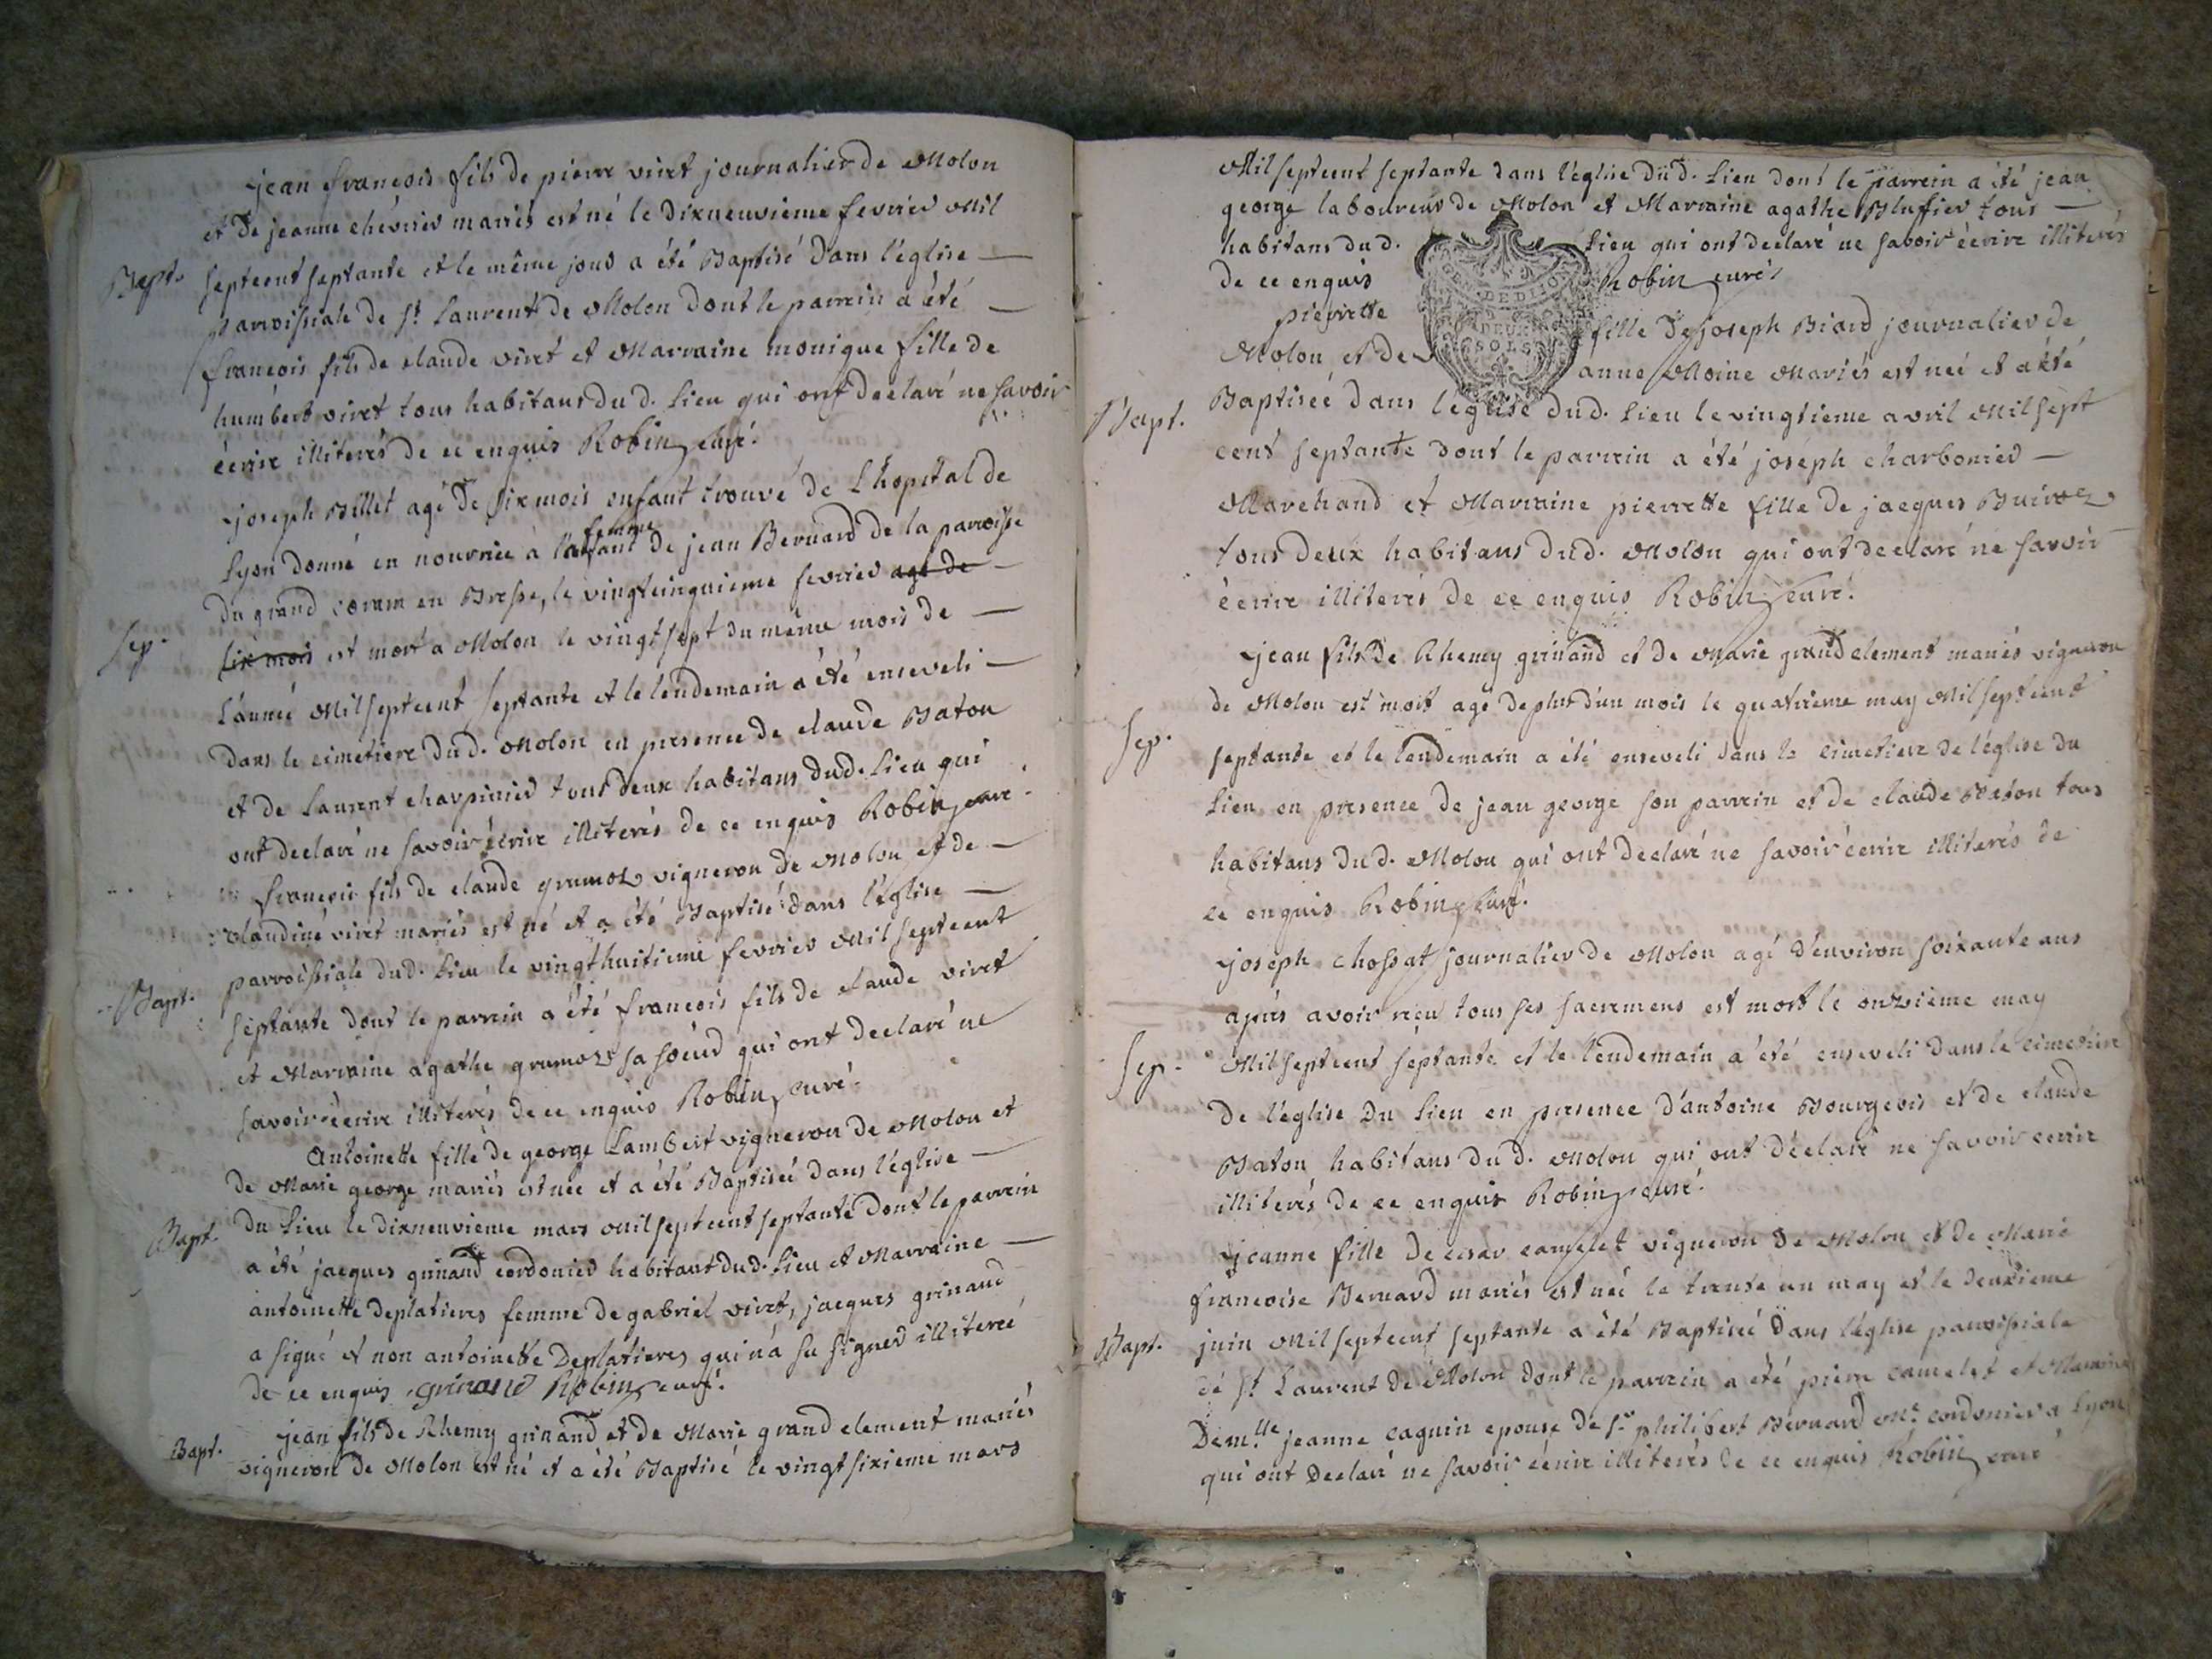 jean francois fils de pierre viret journalier de Molon
et de jeanne chévrier mariés est né le dixneuvieme fevrier Mil
Bapt. septcent septante et le même jour a été Baptisé dans l'église —
parroissiale de St. Laurent de Molon dont le parrein a été —
francois fils de claude viret et Marraine monique fille de
humbert viret tous habitans dud. Lieu qui ont declaré ne savoir
écrire illiterés de ce enquis Robin curé.
joseph Billet agé de six mois enfant trouvé de L'hopital de
Lyon donné en nourrice à la femme de jean Bernard de la parroisse
du grand coram en Bresse, le vingtcinquieme fevrier agé de —
Sep. six mois est mort a Molon le vingt sept du même mois de —
L'année Mil septcent septante et le lendemain a été enseveli —
dans le cimetiere dud. Molon en presence de claude Baton
et de Laurent charpinier tous deux habitans dud. Lieu qui
ont declaré ne savoir écrire illiterés de ce enquis Robin curé.
francois fils de claude grumoz vigneron de Molon et de —
claudine viret mariés est né et a été Baptisé dans l'église —
parroissiale dud. Lieu le vingthuitieme fevrier Mil septcent
Bapt. septante dont le parrein a été francois fils de claude viret
et Marraine agathe grumoz sa soeur qui ont declaré ne
savoir écrire illiterés de ce enquis Robin curé.
Antoinette fille de george Lambert vigneron de Molon et
de Marie george mariés est née et a été Baptisée dans l'église —
Bapt. du Lieu le dixneuvieme mars Mil septcent septante dont le parrein
a été jacques grinand cordonier habitant dud. Lieu et Marraine —
antoinette deplatieres femme de gabriel viret, jacques grinand
a signé et non antoinette Deplatieres qui n'a su signer illiterée
de ce enquis grinand Robin curé.
jean fils de Rhemy grinand et de Marie grand clement mariés
Bapt. vigneron de Molon est né et a été Baptisé le vingt sixieme mars
Mil septcent septante dans l'église dud. Lieu dont le parrein a été jean
george laboureur de Molon et Marraine agathe Blufier tous —
habitans dud. Lieu qui ont declaré ne savoir écrire illiterés
de ce enquis Robin curé.
DEUX SOLS
pierrette fille de joseph Biard journalier de
Molon et de anne Moine Mariés est neé et a été
Bapt. Baptiseé dans l'église dud. Lieu le vingtieme avril Mil sept
cent septante dont le parrein a été joseph charbonier —
Marchand et Marraine pierrette fille de jacques
tous deux habitans dud. Molon qui ont declaré ne savoir
écrire illiterés de ce enquis Robin curé.
jean fils de Rhemy grinand et de Marie grand clement mariés vigneron
de Molon est mort agé de plus d'un mois le quatrieme may Mil septcent
Sep. septante et le lendemain a été enseveli dans le cimetiere de l'église du
Lieu en presence de jean george son parrein et de claude Baton tous
habitans dud. Molon qui ont declaré ne savoir écrire illiterés de
ce enquis Robin curé.
joseph chossat journalier de Molon agé d'environ soixante ans
après avoir reçu tous ses sacremens est mort le onzième may
Sep. Mil septcent septante et le lendemain a été enseveli dans le cimetiere
de l'église du Lieu en presence d'antoine Bourgeois et de claude
Baton habitans dud. Molon qui ont declaré ne savoir ecrire
illiterés de ce enquis Robin curé.
jeanne fille de cesar camelet vigneron de Molon et de Marie
francoise Bernard mariés est neé le trente un may et le deuxieme
Bapt. juin Mil septcent septante a été Baptiseé dans l'église parroissiale
de St. Laurent de Molon dont le parrein a été pierre camelet et Marraine
Demlle. jeanne caquin epouse de Sr. philibert Bernard Me. cordonier a Lyon
qui ont declaré ne savoir écrire illiterés de ce enquis Robin curé